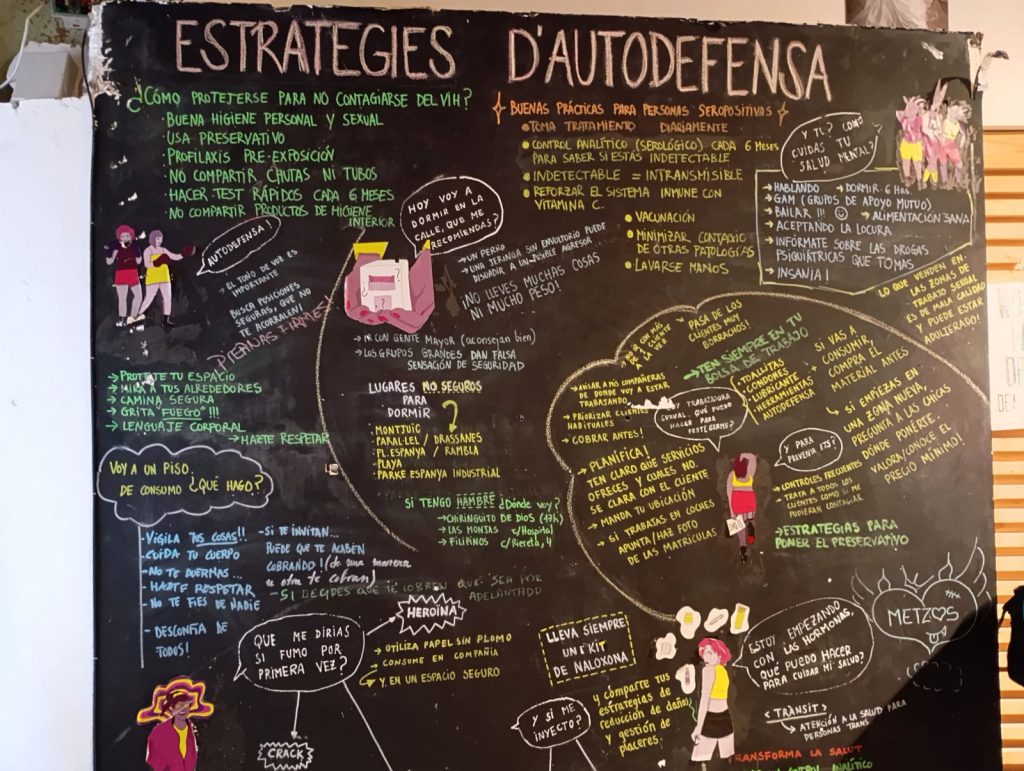 ESTRATEGIES D'AUTODEFENSA
¿CÓMO PROTEJERSE PARA NO CONTAGIARSE DEL VIH?
· BUENA HIGIENE PERSONAL Y SEXUAL
· USA PRESERVATIVO
· PROFILAXIS PRE-EXPOSICIÓN
· NO COMPARTIR CHUTAS NI TUBOS
· HACER TEST RÁPIDOS CADA 6 MESES
· NO COMPARTIR PRODUCTOS DE HIGIENE
INTERIOR
BUENAS PRÁCTICAS PARA PERSONAS SEROPOSITIVAS
• TOMA TRATAMIENTO DIARIAMENTE
• CONTROL ANALÍTICO (SEROLÓGICO) CADA 6 MESES
PARA SABER SI ESTÁS INDETECTABLE
• INDETECTABLE = INTRANSMISIBLE
• REFORZAR EL SISTEMA INMUNE CON
VITAMINA C.
• VACUNACIÓN
• MINIMIZAR CONTAGIO
DE OTRAS PATOLOGÍAS
• LAVARSE MANOS
Y TU? COMO
CUIDAS TU
SALUD MENTAL?
→ HABLANDO → DORMIR 6 Hrs
→ GAM (GRUPOS DE APOYO MUTUO)
→ BAILAR !!! → ALIMENTACIÓN SANA
→ ACEPTANDO LA LOCURA
→ INFÓRMATE SOBRE LAS DROGAS
PSIQUIÁTRICAS QUE TOMAS
→ INSANIA!
AUTODEFENSA!
→ EL TONO DE VOZ ES
IMPORTANTE
BUSCA POSICIONES
SEGURAS, QUE NO
TE ACORRALEN!
→ PROTEJE TU ESPACIO
→ MIRA A TUS ALREDEDORES
→ CAMINA SEGURA
→ GRITA "FUEGO"!!!
→ LENGUAJE CORPORAL
→ HAZTE RESPETAR
HOY VOY A
DORMIR EN LA
CALLE, QUE ME
RECOMIENDAS?
→ UN PERRO
→ UNA JERINGA SIN ENVOLTORIO PUEDE
DISUADIR A UN POSIBLE AGRESOR
¡NO LLEVES MUCHAS COSAS
NI MUCHO PESO!
→ IR CON GENTE MAYOR (aconsejan bien)
→ LOS GRUPOS GRANDES DAN FALSA
SENSACIÓN DE SEGURIDAD
LUGARES NO SEGUROS
PARA
DORMIR
- MONTJUIC
- PARAL·LEL / DRASSANES
- PL. ESPANYA / RAMBLA
- PLAYA
- PARKE ESPANYA INDUSTRIAL
SI TENGO HAMBRE ¿Dónde voy?
→ CHIRINGUITO DE DIOS (17h)
→ LAS MONJAS c/Hospital
→ FILIPINOS c/Riereta, 4
VOY A UN PISO
DE CONSUMO ¿QUÉ HAGO?
- VIGILA TUS COSAS!!
- CUIDA TU CUERPO
- NO TE DUERMAS...
- HAZTE RESPETAR
- NO TE FIES DE NADIE
- DESCONFÍA DE
TODOS!
- SI TE INVITAN...
PUEDE QUE TE ACABEN
COBRANDO! (de una manera
u otra te cobran)
- SI DECIDES QUE TE COBREN QUE SEA POR
ADELANTADO
QUE ME DIRÍAS
SI FUMO POR
PRIMERA VEZ?
HEROÍNA
→ UTILIZA PAPEL SIN PLOMO
→ CONSUME EN COMPAÑÍA
Y EN UN ESPACIO SEGURO
CRACK
LLEVA SIEMPRE
UN KIT
DE NALOXONA
y comparte tus
estrategias de
reducción de daños
y gestión de
placeres
Y SI ME
INYECTO?
PASA DE LOS
CLIENTES MUY
BORRACHOS!
→ TEN SIEMPRE EN TU
BOLSA DE TRABAJO
• TOALLITAS
• CONDONES
• LUBRICANTE
• HERRAMIENTAS
AUTODEFENSA
+ SI VAS A
CONSUMIR,
COMPRA EL
MATERIAL ANTES
LO QUE VENDEN EN
LAS ZONAS DE
TRABAJO SEXUAL
ES DE MALA CALIDAD
Y PUEDE ESTAR
ADULTERADO!
→ AVISAR A MIS COMPAÑERAS
DE DONDE VOY A ESTAR
TRABAJANDO
→ PRIORIZAR CLIENTES
HABITUALES
→ COBRAR ANTES!
SOY TRABAJADORA
SEXUAL. QUÉ PUEDO
HACER PARA
PROTEGERME?
→ PLANIFICA!
TEN CLARO QUE SERVICIOS
OFRECES Y CUALES NO.
SE CLARA CON EL CLIENTE
→ MANDA TU UBICACIÓN
→ SI TRABAJAS EN COCHES
APUNTA/HAZ FOTO
DE LAS MATRICULAS
→ SI EMPIEZAS EN
UNA ZONA NUEVA,
PREGUNTA A LAS CHICAS
DÓNDE PONERTE.
VALORA/CONOCE EL
PRECIO MÍNIMO!
Y PARA
PREVENIR ITS?
• CONTROLES FRECUENTES
• TRATA A TODOS LOS
CLIENTES COMO SI ME
PUDIERAN CONTAGIAR
→ ESTRATEGIAS PARA
PONER EL PRESERVATIVO
ESTOY EMPEZANDO
CON LAS HORMONAS,
QUÉ PUEDO HACER
PARA CUIDAR MI SALUD?
METZOS
< TRÀNSIT >
→ ATENCIÓN A LA SALUD PARA
PERSONAS TRANS
TRANSFORMA LA SALUT
CONTROL ANALÍTICO